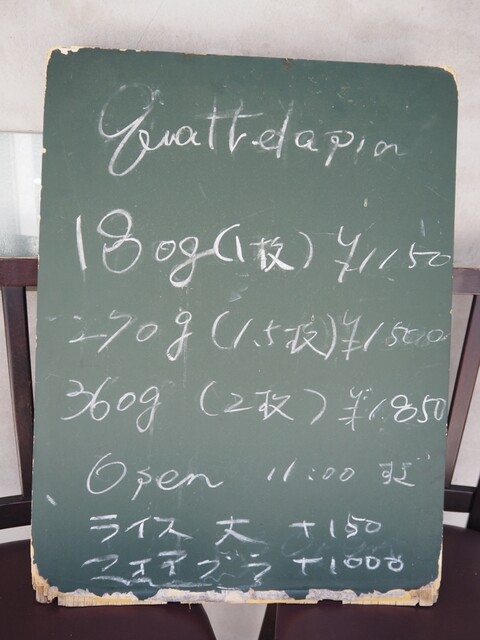 180g (1枚) ¥1150
270g (1.5枚) ¥1500
360g (2枚) ¥1850
Open 11:00
ライス 大 +150
フォアグラ +1000